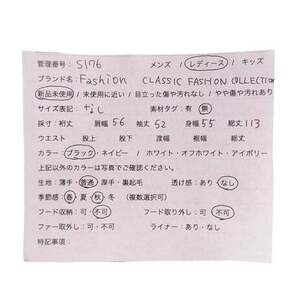 管理番号：S176 メンズ / レディース / キッズ
ブランド名：Fashion CLASSIC FASHION COLLECTION
新品未使用 / 未使用に近い / 目立った傷や汚れなし / やや傷や汚れあり
サイズ表記：なし 素材タグ：有 無
採寸：裄丈 肩幅 56 袖丈 52 身幅 55 総丈 113
ウエスト 股上 股下 渡幅 裾幅 総丈
カラー：ブラック・ネイビー / ホワイト・オフホワイト・アイボリー
上記以外のカラーは写真でご確認ください。
生地：薄手・普通・厚手・裏起毛 透け感：あり・なし
季節感：春・夏・秋・冬（複数選択可）
フード収納：可・不可 フード取り外し：可・不可
ファー取外し：可・不可 ライナー：あり・なし
特記事項：